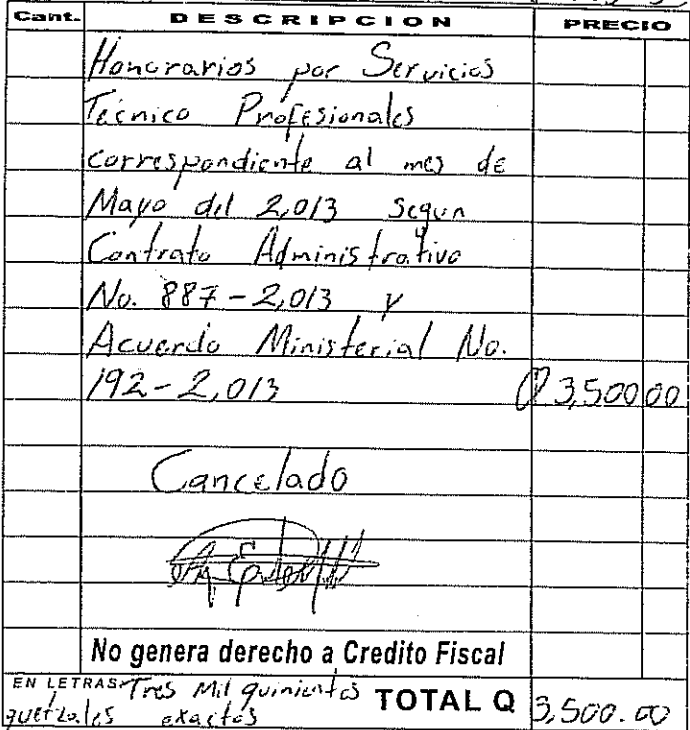 Cant. DESCRIPCION PRECIO
Honorarios por Servicios
Técnico Profesionales
correspondiente al mes de
Mayo del 2,013 Segun
Contrato Administrativo
No. 887-2,013 y
Acuerdo Ministerial No.
192-2,013 Q 3,500 00
Cancelado
No genera derecho a Credito Fiscal
EN LETRAS Tres Mil quinientos TOTAL Q 3,500.00
quetzales exactos